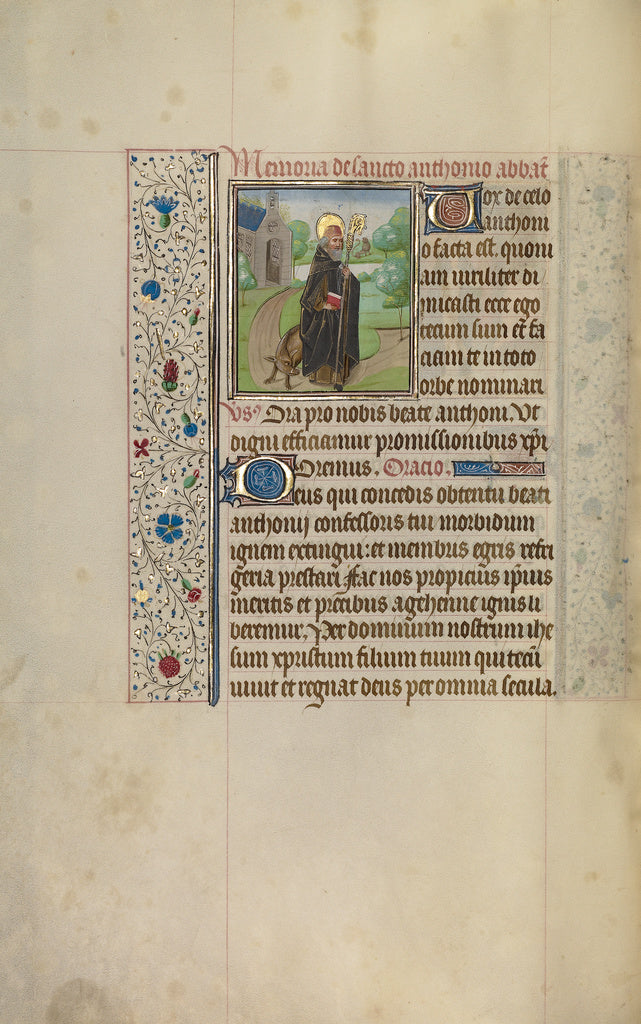 Memoria de sancto anthonio abbat̄
Vox de celo
anthoni
o facta est. quoni
am uiriliter di
micasti ecce ego
tecum sum et̄ fa
ciam te in toto
orbe nominari
vsꝰ Ora pro nobis beate anthoni. Vt
digni efficiamur promissionibus xp̄i
Oremus. Oracio.
Deus qui concedis obtentu beati
anthonij confessoris tui morbidum
ignem extingui: et membris egris refri
geria prestari fac nos propicius ip̄ius
meritis et precibus a gehenne ignis li
beremur. Per dominum nostrum ihe
sum xpristum filium tuum qui tecū
uiuit et regnat deus per omnia secula.